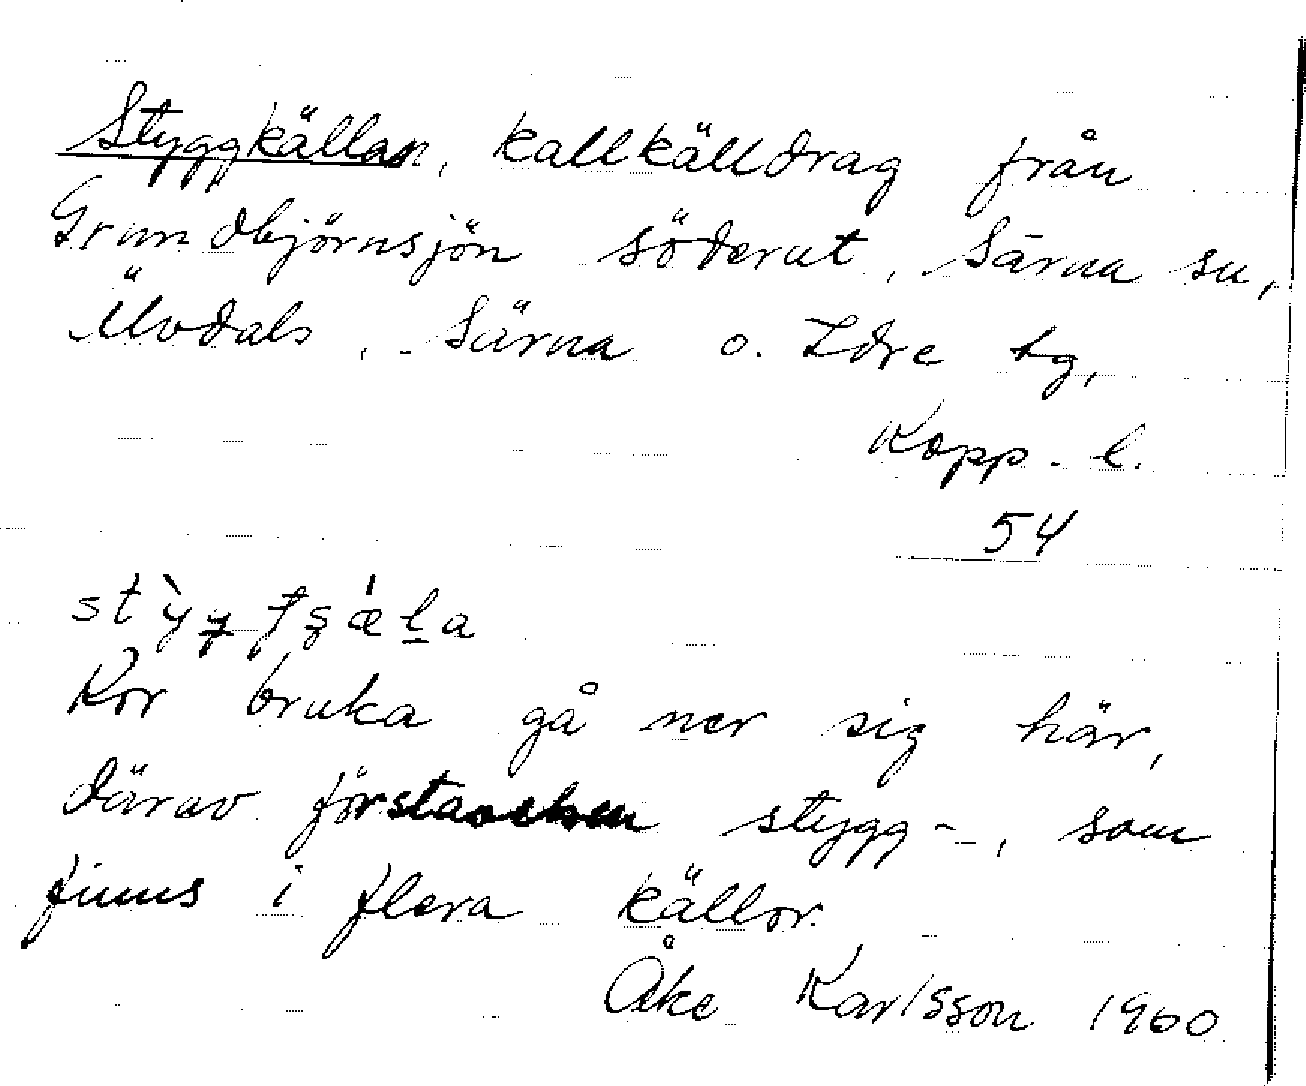 Styggkällan, kallkälldrag från
Grundbjörnsjön söderut, Särna sn,
Älvdals, Särna o. Idre tg,
Kopp. l.
54
stỳgtʂǽḷa
Kor bruka gå ner sig här,
därav förstavelsen stygg-, som
finns i flera källor.
Åke Karlsson 1960